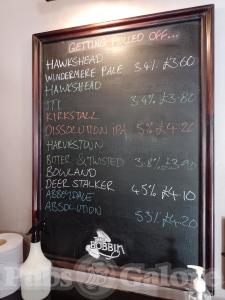 GETTING PULLED OFF...
HAWKSHEAD
WINDERMERE PALE 3.4% £3.60
HAWKSHEAD
ITI 3.4% £3.80
KIRKSTALL
DISSOLUTION IPA 5% £4.20
HARVESTOUN
BITTER & TWISTED 3.8% £3.90
BOWLAND
DEER STALKER 4.5% £4.10
ABBEYDALE
ABSOLUTION 5.3% £4.20
BOBBIN
Pubs Galore